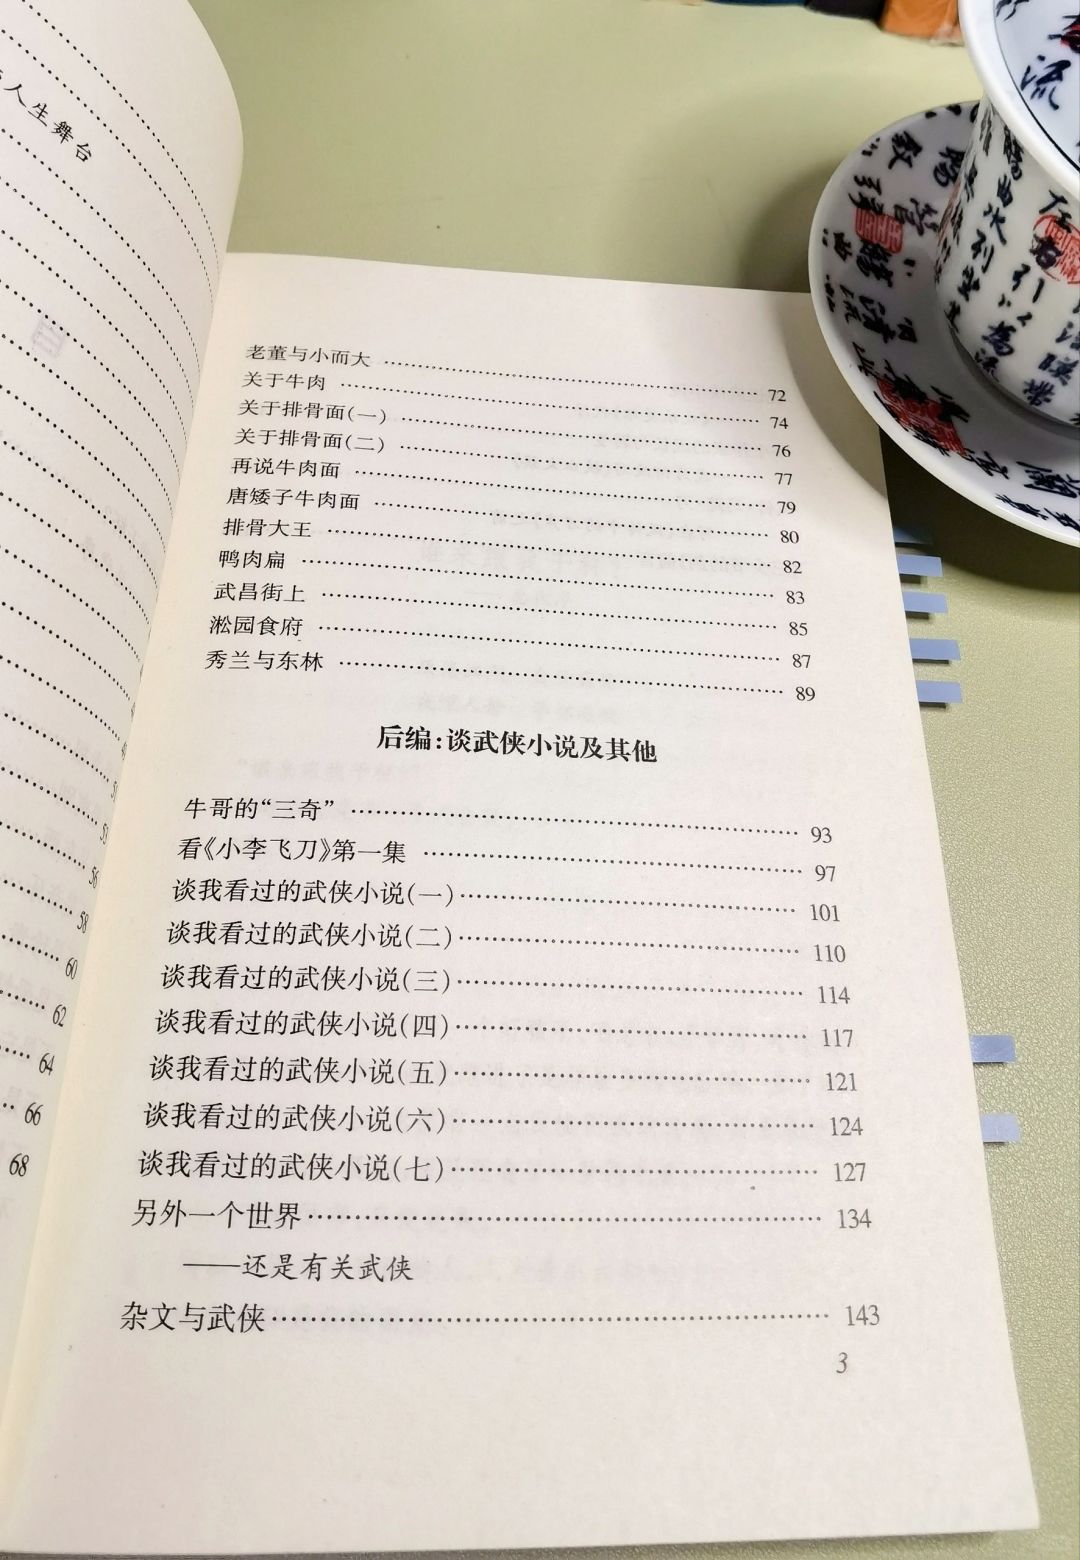 人生舞台
56
58
60
62
64
66
68
老董与小而大 72
关于牛肉 74
关于排骨面(一) 76
关于排骨面(二) 77
再说牛肉面 79
唐矮子牛肉面 80
排骨大王 82
鸭肉扁 83
武昌街上 85
淞园食府 87
秀兰与东林 89
后编:谈武侠小说及其他
牛哥的“三奇” 93
看《小李飞刀》第一集 97
谈我看过的武侠小说(一) 101
谈我看过的武侠小说(二) 110
谈我看过的武侠小说(三) 114
谈我看过的武侠小说(四) 117
谈我看过的武侠小说(五) 121
谈我看过的武侠小说(六) 124
谈我看过的武侠小说(七) 127
另外一个世界 134
——还是有关武侠
杂文与武侠 143
3
流
曲水列坐
引以為流